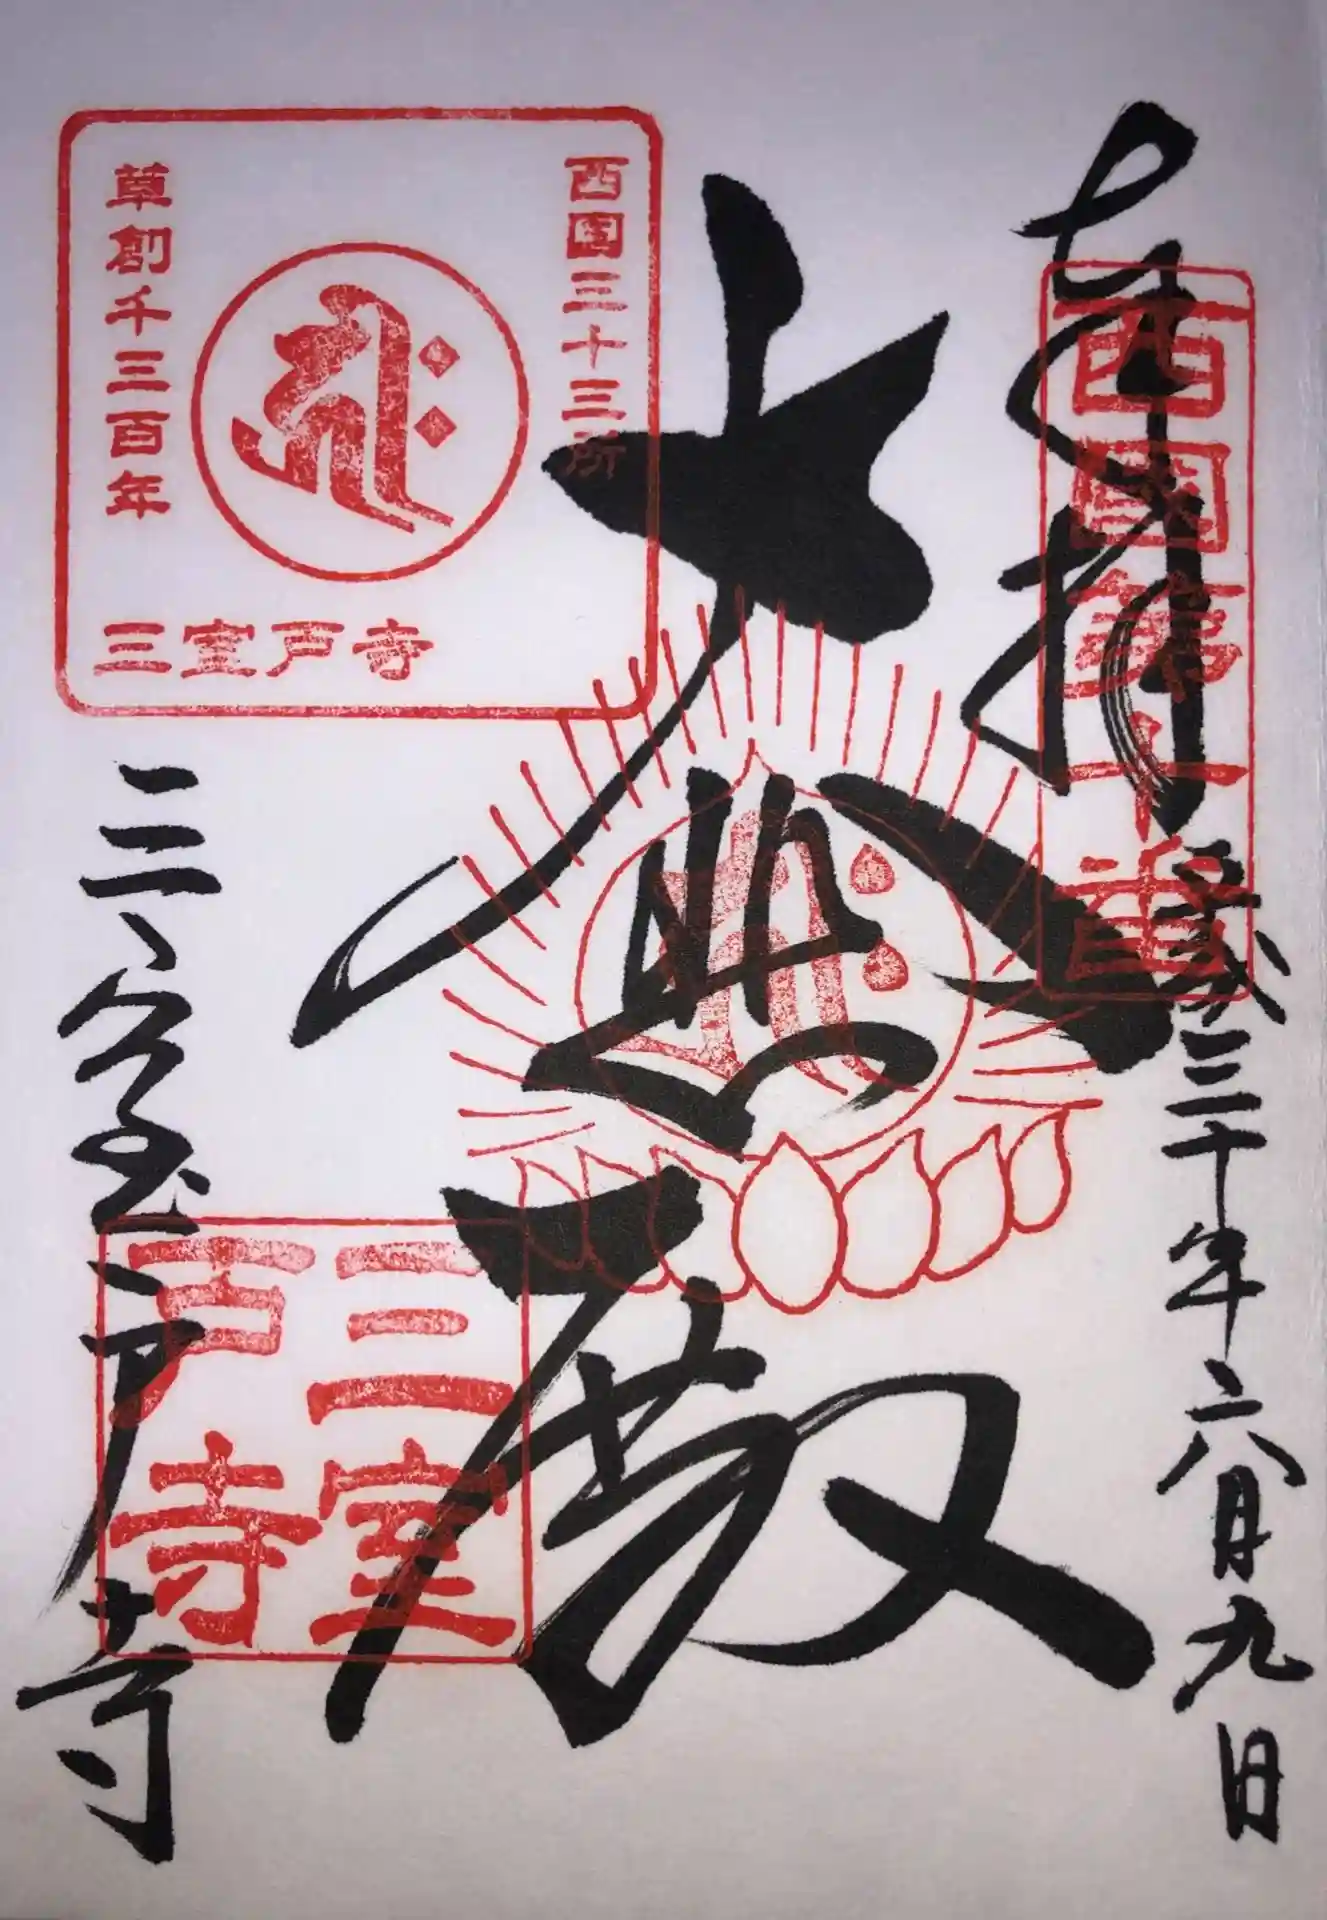 奉拝
平成三十年六月九日
西国第十番
大悲殿
西国三十三所
草創千三百年
三室戸寺
三室戸寺
三室戸寺